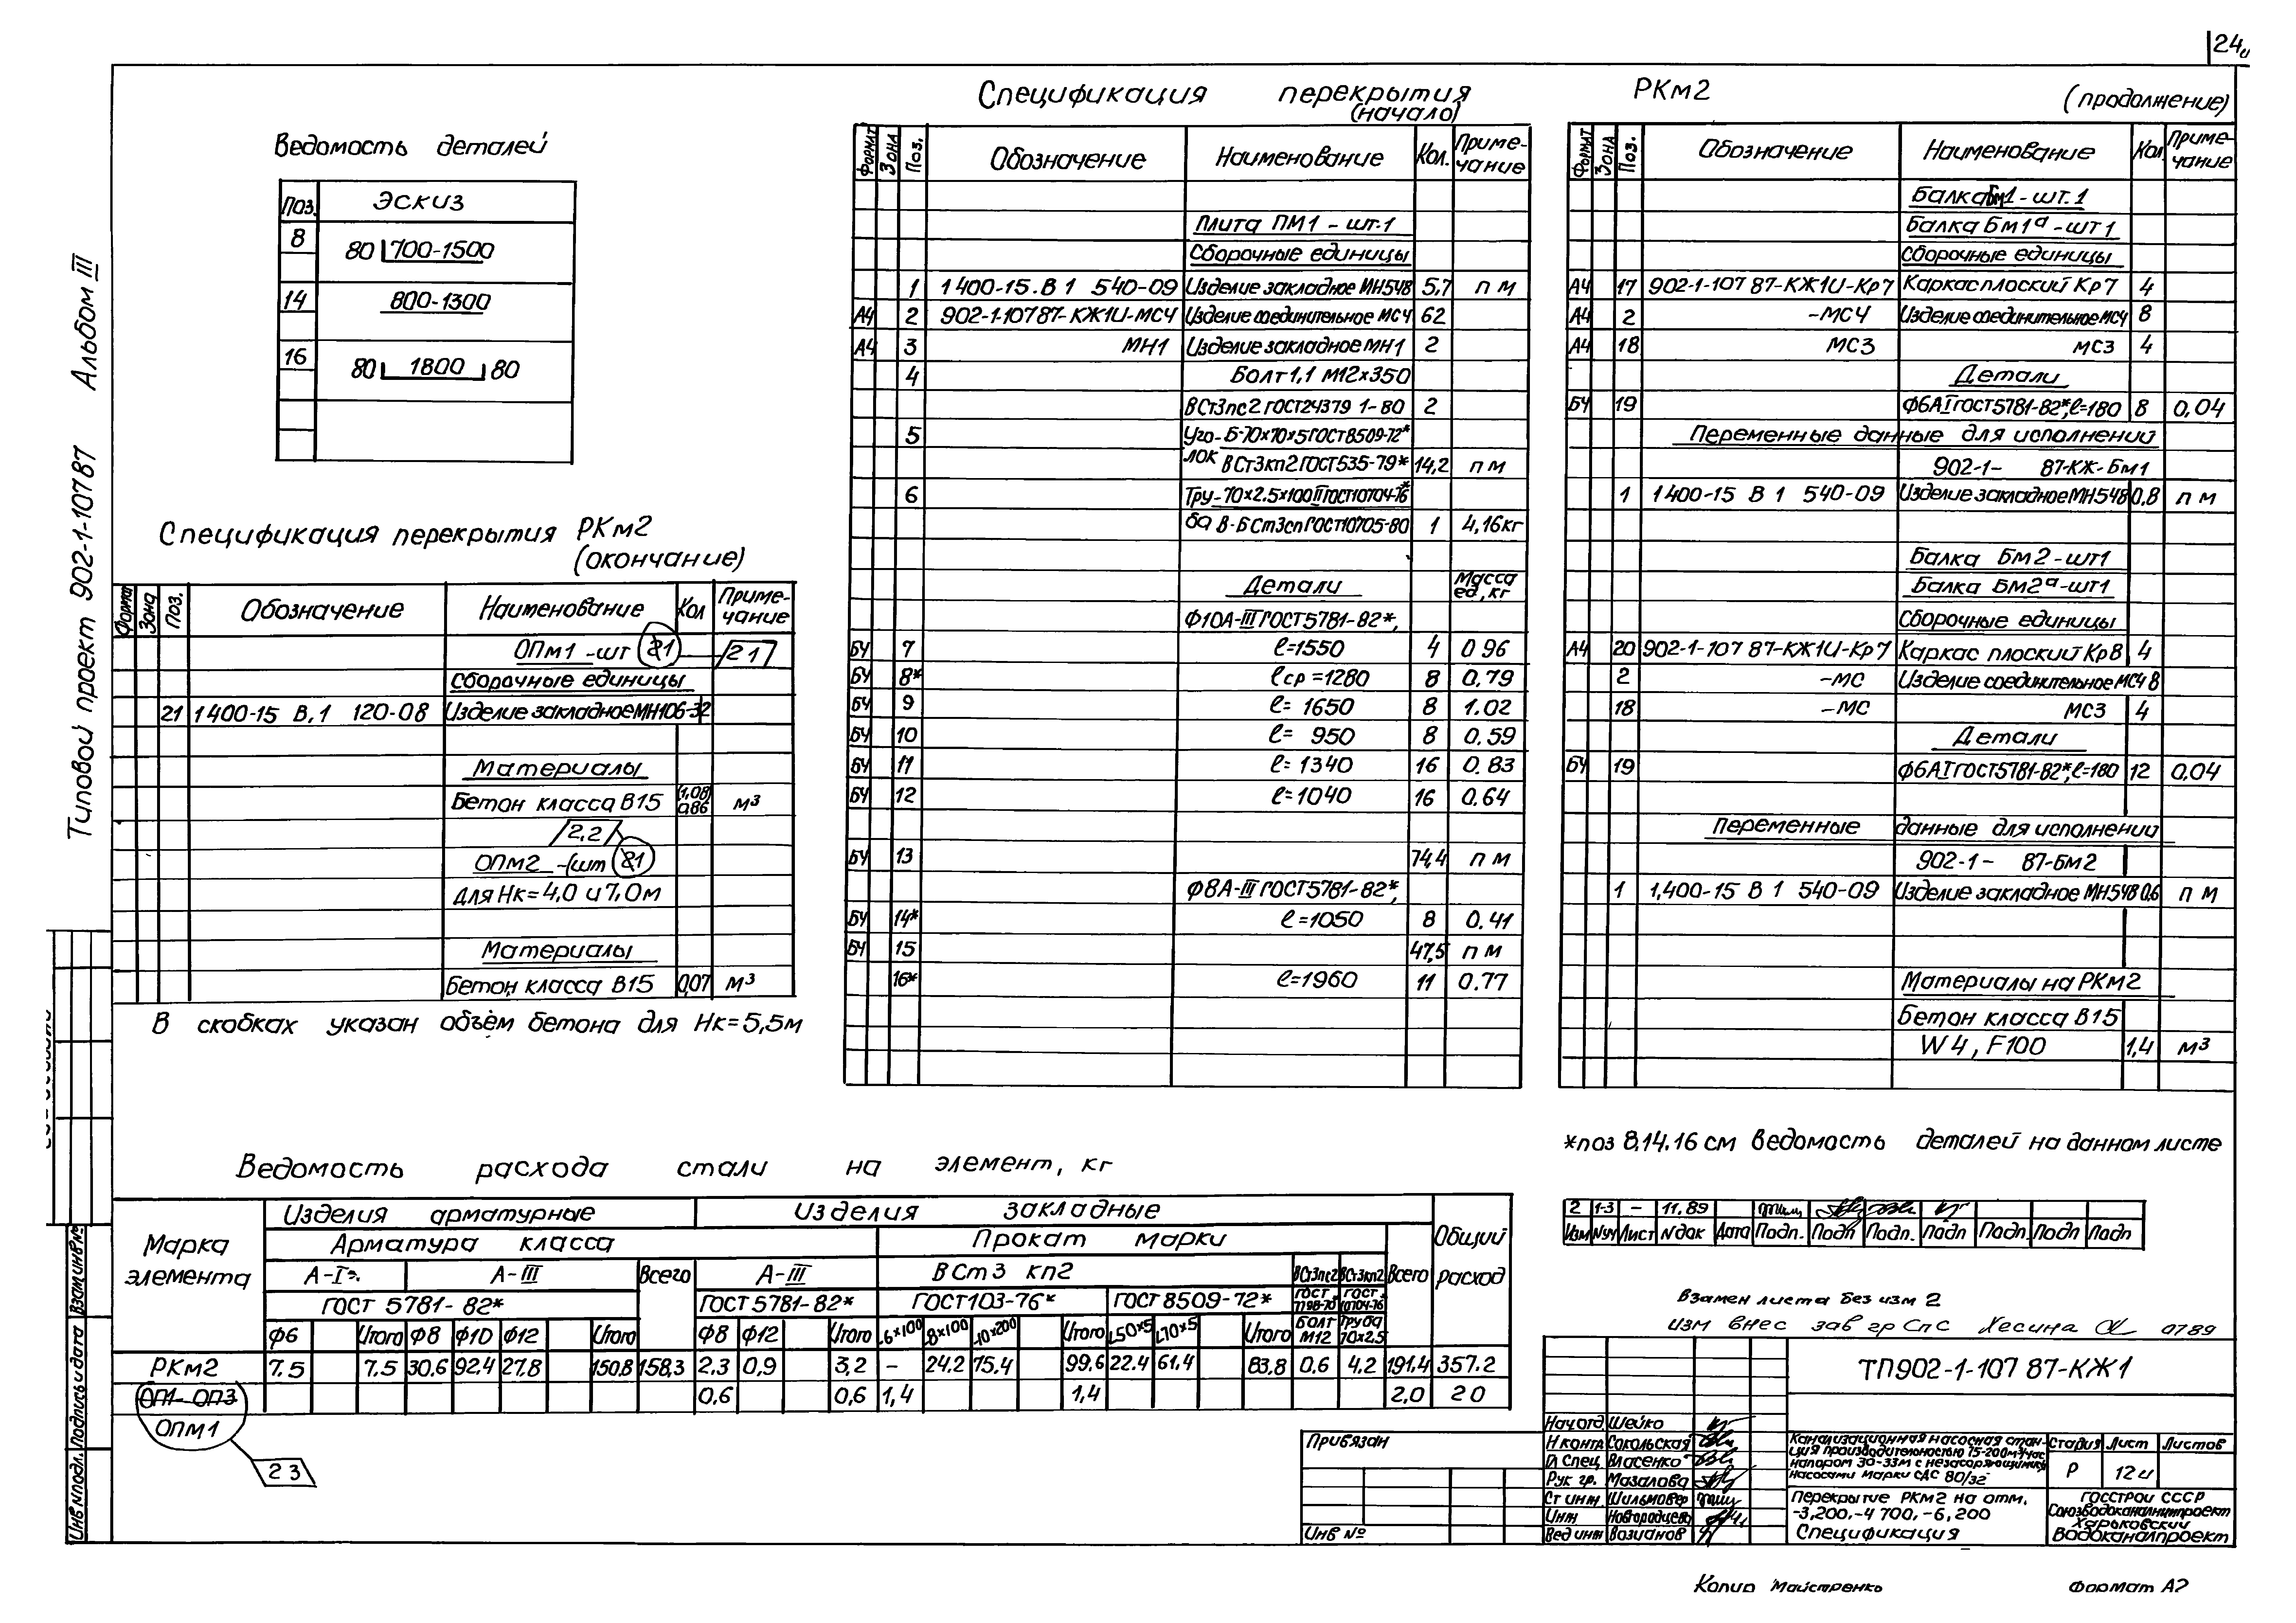 24и
Типовой проект 902-1-10787 Альбом III
Ведомость деталей
Поз. Эскиз
8 80 700-1500
14 800-1300
16 80 1800 80
Спецификация перекрытия РКм2
(окончание)
Формат Зона Поз. Обозначение Наименование Кол Приме-
чание
ОПм1 - шт 21 21
Сборочные единицы
21 1400-15 В,1 120-08 Изделие закладное МН106-32
Материалы
Бетон класса В15 (1,08) 0,86 м³
2.2
ОПм2 -(шт 21
для Нк=4,0 и 7,0м
Материалы
Бетон класса В15 0,07 м³
В скобках указан объём бетона для Нк=5,5м
Спецификация перекрытия РКм2
(начало)
Формат Зона Поз. Обозначение Наименование Кол. Приме-
чание
Плита ПМ1 - шт.1
Сборочные единицы
1 1400-15.В 1 540-09 Изделие закладное МН548 5,7 п м
А4 2 902-1-10787-КЖ1И-МС4 Изделие соединительное МС4 62
А4 3 МН1 Изделие закладное МН1 2
4 Болт 1,1 М12×350
ВСт3пс2 ГОСТ24379 1-80 2
5 Уго- Б-70×70×5 ГОСТ8509-72*
лок ВСт3кп2 ГОСТ535-79* 14,2 п м
6 Тру- 70×2.5×100 II ГОСТ10704-76*
ба В-БСт3сп ГОСТ10705-80 1 4,16кг
Детали Масса
ед, кг
Ф10А-III ГОСТ5781-82*,
БЧ 7 ℓ=1550 4 0 96
БЧ 8* ℓср=1280 8 0.79
БЧ 9 ℓ= 1650 8 1.02
БЧ 10 ℓ= 950 8 0.59
БЧ 11 ℓ= 1340 16 0.83
БЧ 12 ℓ=1040 16 0.64
БЧ 13 74,4 п м
Ф8А-III ГОСТ5781-82*,
БЧ 14* ℓ=1050 8 0.41
БЧ 15 47,5 п м
16* ℓ=1960 11 0.77
(продолжение)
Формат Зона Поз. Обозначение Наименование Кол. Приме-
чание
Балка Бм1 - шт.1
Балка Бм1ᵃ - шт 1
Сборочные единицы
А4 17 902-1-107 87-КЖ1И-Кр7 Каркас плоский Кр7 4
А4 2 -МС4 Изделие соединительное МС4 8
А4 18 МС3 МС3 4
Детали
БЧ 19 Ф6АI ГОСТ5781-82*, ℓ=180 8 0,04
Переменные данные для исполнений
902-1- 87-КЖ-Бм1
1 1400-15 В 1 540-09 Изделие закладное МН548 0,8 п м
Балка Бм2 - шт1
Балка Бм2ᵃ - шт1
Сборочные единицы
А4 20 902-1-107 87-КЖ1И-Кр7 Каркас плоский Кр8 4
2 -МС Изделие соединительное МС4 8
18 -МС МС3 4
Детали
БЧ 19 Ф6АI ГОСТ5781-82*, ℓ=180 12 0,04
Переменные данные для исполнений
902-1- 87-Бм2
1 1,400-15 В 1 540-09 Изделие закладное МН548 0,6 п м
Материалы на РКм2
Бетон класса В15
W4, F100 1,4 м³
*поз 8,14,16 см ведомость деталей на данном листе
Ведомость расхода стали на элемент, кг
Марка элемента Изделия арматурные Изделия закладные Общий расход
Арматура класса Прокат марки
А-I А-III Всего А-III ВСт3 кп2 ВСт3пс2 ВСт3кп2 Всего
ГОСТ 5781-82* ГОСТ 5781-82* ГОСТ103-76* ГОСТ 8509-72* ГОСТ 7798-70 ГОСТ 10704-76
Ф6 Итого Ф8 Ф10 Ф12 Итого Ф8 Ф12 Итого -6×100 -8×100 -10×200 Итого L50×5 L70×5 Итого Болт М12 Труба 70×2.5
РКм2 7.5 7.5 30.6 92.4 27.8 150,8 158,3 2.3 0,9 3,2 - 24.2 75.4 99.6 22.4 61,4 83,8 0.6 4,2 191.4 357.2
ОП1-ОП3 0,6 0,6 1,4 1,4 2,0 2 0
ОПм1
2 3
2 1-3 - 11.89
Изм Nуч Лист Nдок Дата Подп. Подп Подп. Подп Подп. Подп Подп
Взамен листа без изм 2
изм внес зав гр Спс Хесина 0789
ТП902-1-107 87-КЖ1
Нач отд. Шейко
Н контр Сокольская
Гл спец. Власенко
Рук гр. Мазалова
Ст инж Шильмовер
Инж Новгородцева
Вед инж Возианов
Канализационная насосная стан-
ция производительностью 75-200м³/час
напором 30-33м с незасоряющимися
насосами марки СДС 80/32
Стадия Лист Листов
Р 12и
Перекрытие РКм2 на отм.
-3,200,-4 700,-6,200
Спецификация
Госстрой СССР
Союзводоканалниипроект
Харьковский
Водоканалпроект
Привязан
Инв №
Инв N подл. Подпись и дата Взам инв №
Копир Майстренко Формат А2